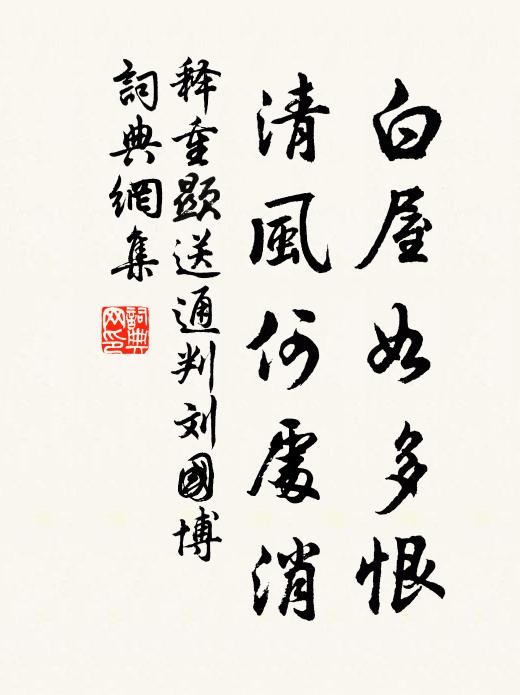 白屋如多恨
清風何處消
释重顯送通判刘國博
詞典網集
詞典
网印